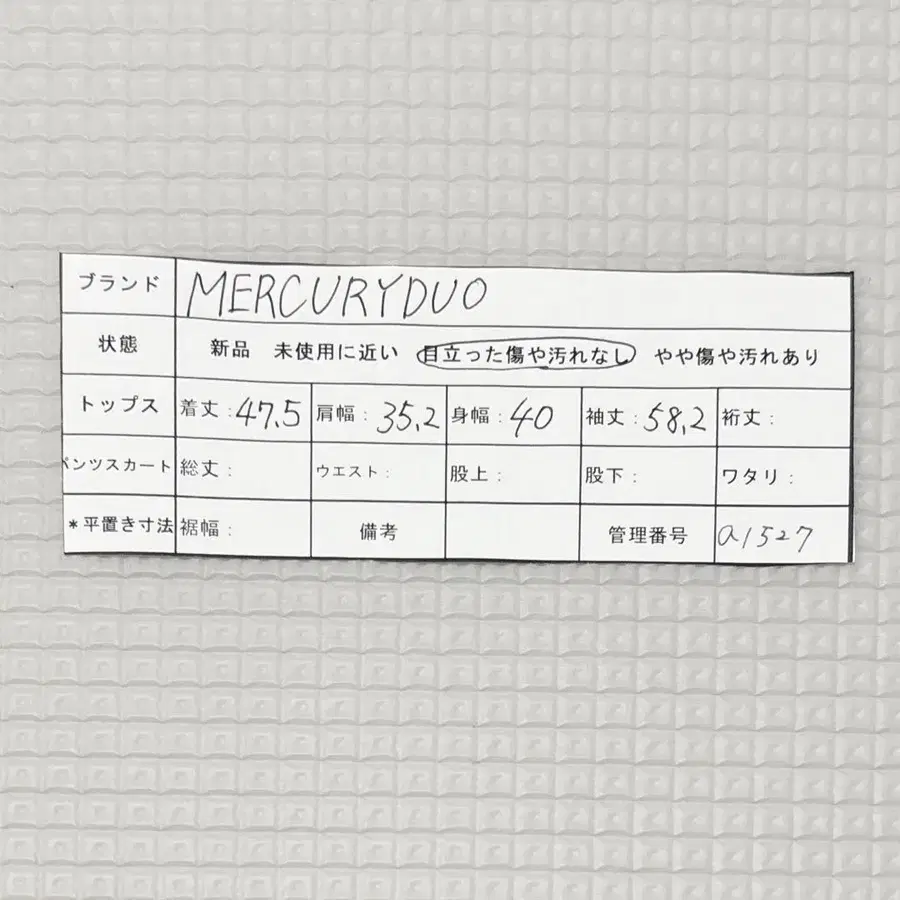 ブランド MERCURYDUO
状態 新品 未使用に近い 目立った傷や汚れなし やや傷や汚れあり
トップス 着丈:47.5 肩幅:35.2 身幅:40 袖丈:58.2 裄丈:
パンツスカート 総丈: ウエスト: 股上: 股下: ワタリ:
*平置き寸法 裾幅: 備考 管理番号 a1527